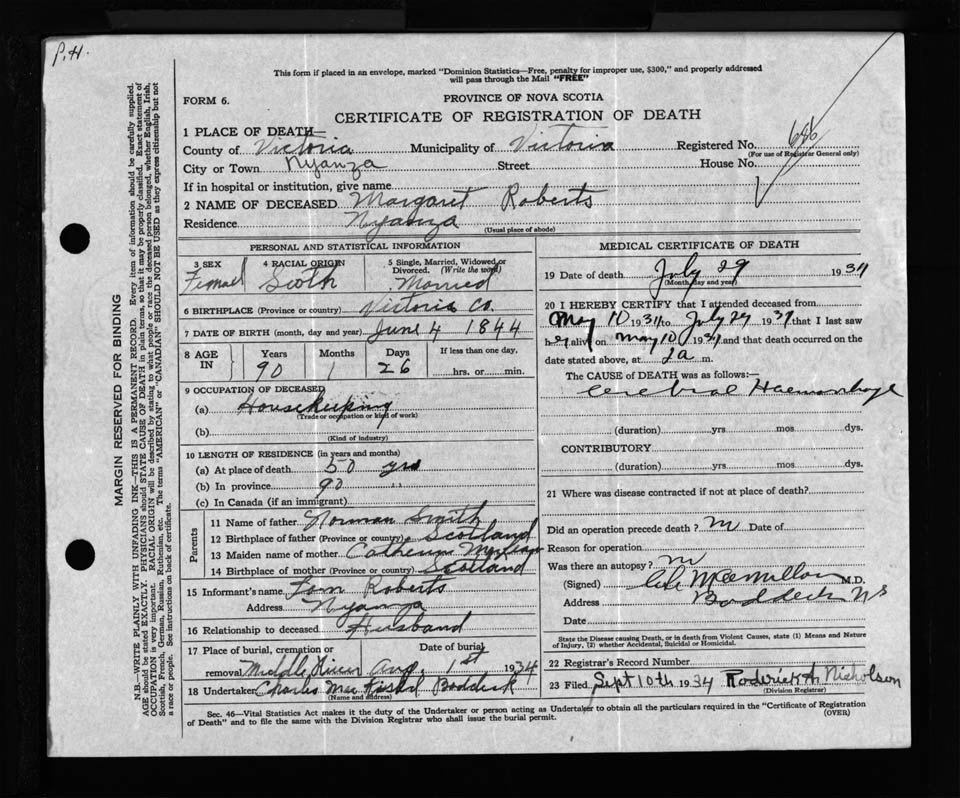 P.H.
This form if placed in an envelope, marked "Dominion Statistics—Free, penalty for improper use, $300," and properly addressed
will pass through the Mail "FREE"
FORM 6.
PROVINCE OF NOVA SCOTIA
CERTIFICATE OF REGISTRATION OF DEATH
1 PLACE OF DEATH—
County of Victoria Municipality of Victoria Registered No. 686
(For use of Registrar General only)
City or Town Nyanza Street House No.
If in hospital or institution, give name
2 NAME OF DECEASED Margaret Roberts
Residence Nyanza
(Usual place of abode)
MARGIN RESERVED FOR BINDING
N.B.—WRITE PLAINLY WITH UNFADING INK—THIS IS A PERMANENT RECORD. Every item of information should be carefully supplied.
AGE should be stated EXACTLY. PHYSICIANS should STATE CAUSE OF DEATH in plain terms, so that it may be properly classified. Exact statement of
OCCUPATION is very important. RACIAL ORIGIN will be described by stating to what people or race the deceased person belonged, whether English, Irish,
Scottish, French, German, Russian, Ruthenian, etc. The terms "AMERICAN" or "CANADIAN" SHOULD NOT BE USED as they express citizenship but not
a race or people. See instructions on back of certificate.
PERSONAL AND STATISTICAL INFORMATION
3 SEX 4 RACIAL ORIGIN 5 Single, Married, Widowed or
Divorced. (Write the word)
Femael Scoth Married
6 BIRTHPLACE (Province or country) Victoria Co.
7 DATE OF BIRTH (month, day and year) June 4 1844
8 AGE IN Years Months Days If less than one day,
90 1 26 hrs. or min.
9 OCCUPATION OF DECEASED
(a) Housekeeping
(Trade or occupation or kind of work)
(b)
(Kind of industry)
10 LENGTH OF RESIDENCE (in years and months)
(a) At place of death 50 yrs
(b) In province 90 "
(c) In Canada (if an immigrant)
Parents
11 Name of father Norman Smith
12 Birthplace of father (Province or country) Scotland
13 Maiden name of mother Catherine
14 Birthplace of mother (Province or country) Scotland
15 Informant's name Tom Roberts
Address Nyanza
16 Relationship to deceased Husband
17 Place of burial, cremation or Date of burial
removal Middle River Aug. 1st 1934
18 Undertaker Charles Baddeck
(Name and address)
MEDICAL CERTIFICATE OF DEATH
19 Date of death July 29 1934
(Month, day and year)
20 I HEREBY CERTIFY that I attended deceased from
May 10 1934 to July 29 1934 that I last saw
her alive on May 10 1934 and that death occurred on the
date stated above, at 2 a m.
The CAUSE OF DEATH was as follows:
Cerebral Haemorrhage
(duration) yrs. mos. dys.
CONTRIBUTORY
(duration) yrs. mos. dys.
21 Where was disease contracted if not at place of death?
Did an operation precede death? no Date of
Reason for operation
Was there an autopsy? no
(Signed) McMillan M.D.
Address Baddeck NS
Date
State the Disease causing Death, or in death from Violent Causes, state (1) Means and Nature
of Injury, (2) whether Accidental, Suicidal or Homicidal.
22 Registrar's Record Number
23 Filed Sept 10th 1934 Roderick A. Nicholson
(Division Registrar)
Sec. 46—Vital Statistics Act makes it the duty of the Undertaker or person acting as Undertaker to obtain all the particulars required in the "Certificate of Registration
of Death" and to file the same with the Division Registrar who shall issue the burial permit.
(OVER)